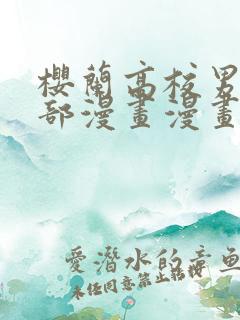 櫻蘭高校男
部漫畫漫畫
愛潛水的章魚
未任同意禁止轉掲